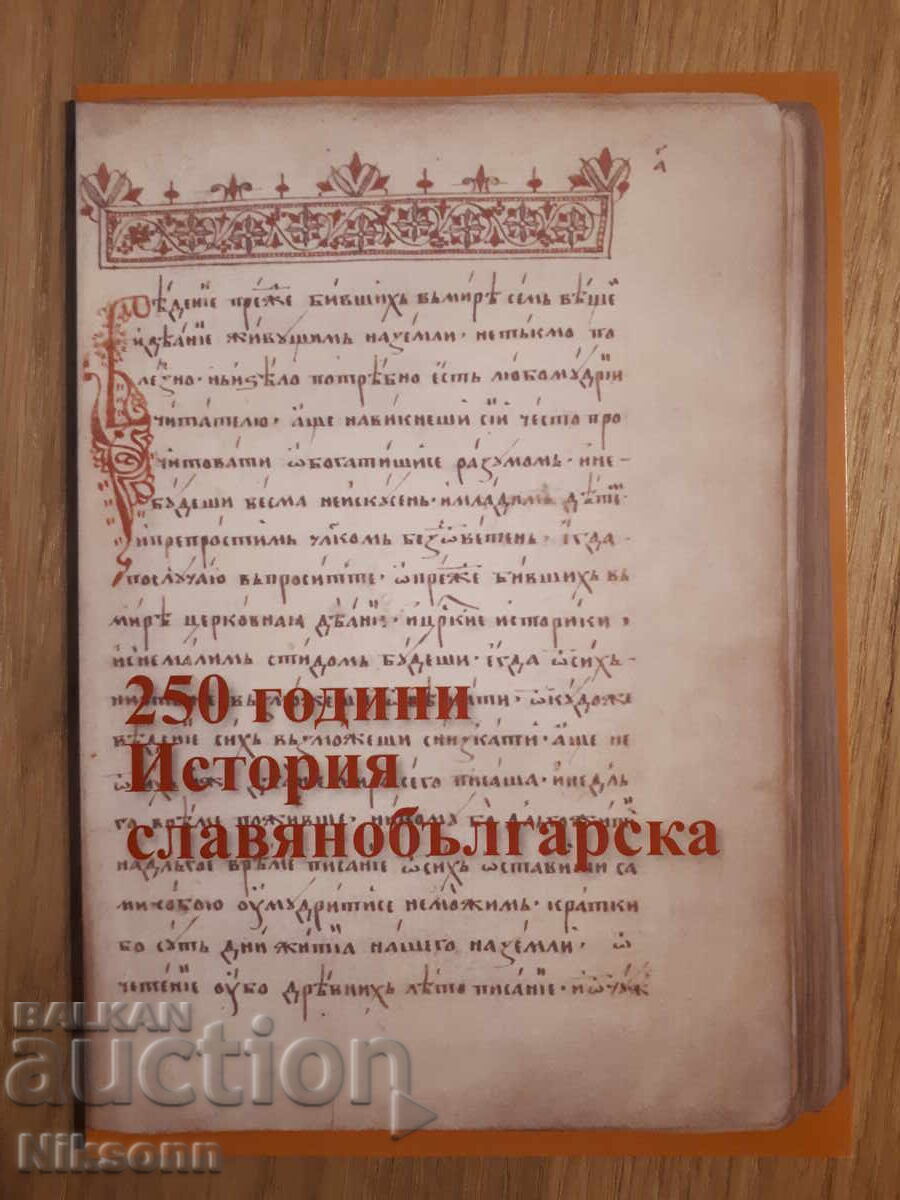 А
вѣденіе преⷤже бившихъ въмирѣ семъ вѣщеи
идѣаніе живущимъ наземли · нетькмо по
лезно · ньизѣло потребно естъ любомудрїи
читателю · аще навикнеши сїи често про
читовати ѡбогатишисе разумомъ · ине
будеши весма неискусенъ · имладимъ дѣте
ипрепростимъ чл҃комъ безѿветенъ · егда
послучаю въпроситъте · ѡпреже бившихъ въ
мирѣ церковнаꙗ дѣаніи · ицр҃кіе историки ·
иснemалимъ стидомъ будеши · егда ѡсихъ
ѿкудоже
вѣдение сихъ възможеши снискати · аще не
сего писаша · инедль
надлъгое време писание ѡсихъ ѡставиши са
ми собою оумудритисе неможимъ · кратки
бо сутъ дни житиꙗ нашего наземли · ѿ
чтение оубо древнихъ лѣто писание · и
250 години
История
славянобългарска
BALKAN
auction
Niksonn